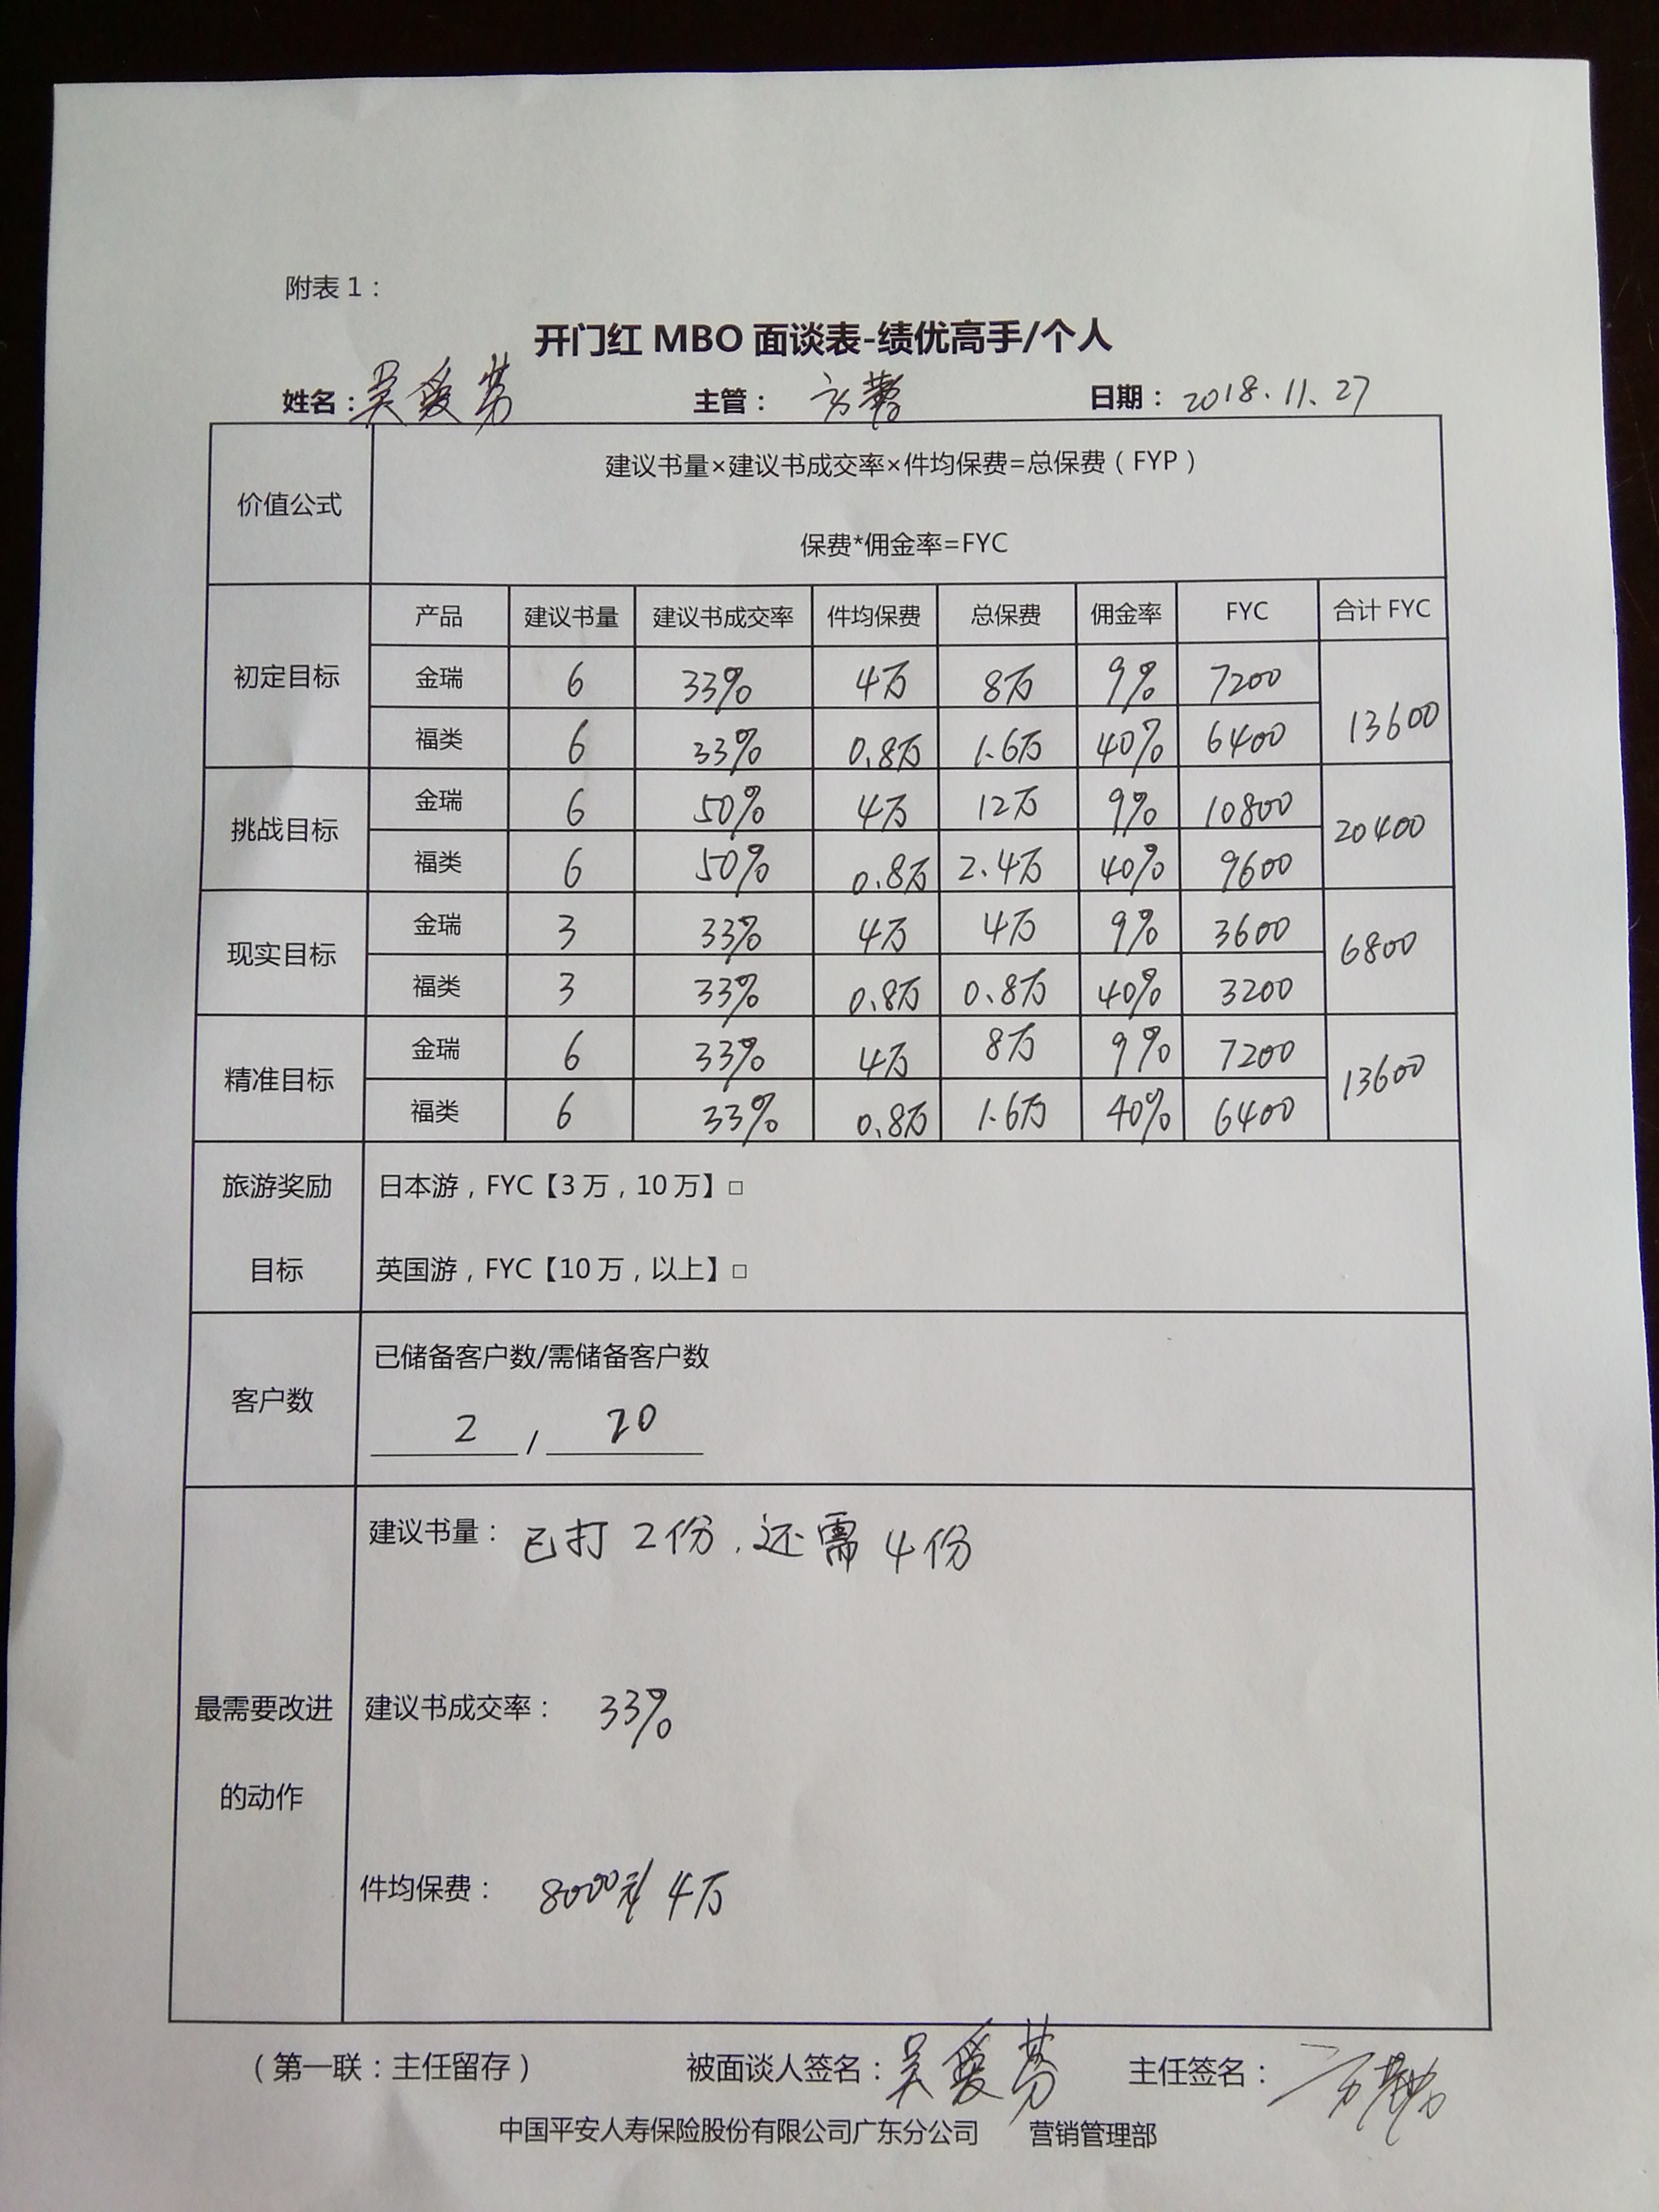 附表1：
开门红 MBO 面谈表-绩优高手/个人
姓名：吴爱芳 主管： 日期：2018.11.27
价值公式
建议书量×建议书成交率×件均保费=总保费（FYP）
保费*佣金率=FYC
初定目标 产品 建议书量 建议书成交率 件均保费 总保费 佣金率 FYC 合计 FYC
金瑞 6 33% 4万 8万 9% 7200 13600
福类 6 33% 0.8万 1.6万 40% 6400
挑战目标 金瑞 6 50% 4万 12万 9% 10800 20400
福类 6 50% 0.8万 2.4万 40% 9600
现实目标 金瑞 3 33% 4万 4万 9% 3600 6800
福类 3 33% 0.8万 0.8万 40% 3200
精准目标 金瑞 6 33% 4万 8万 9% 7200 13600
福类 6 33% 0.8万 1.6万 40% 6400
旅游奖励 日本游，FYC【3万，10万】□
目标 英国游，FYC【10万，以上】□
客户数 已储备客户数/需储备客户数
2 / 20
建议书量： 已打2份，还需4份
最需要改进 建议书成交率： 33%
的动作
件均保费： 8000元/4万
（第一联：主任留存） 被面谈人签名：吴爱芳 主任签名：
中国平安人寿保险股份有限公司广东分公司 营销管理部